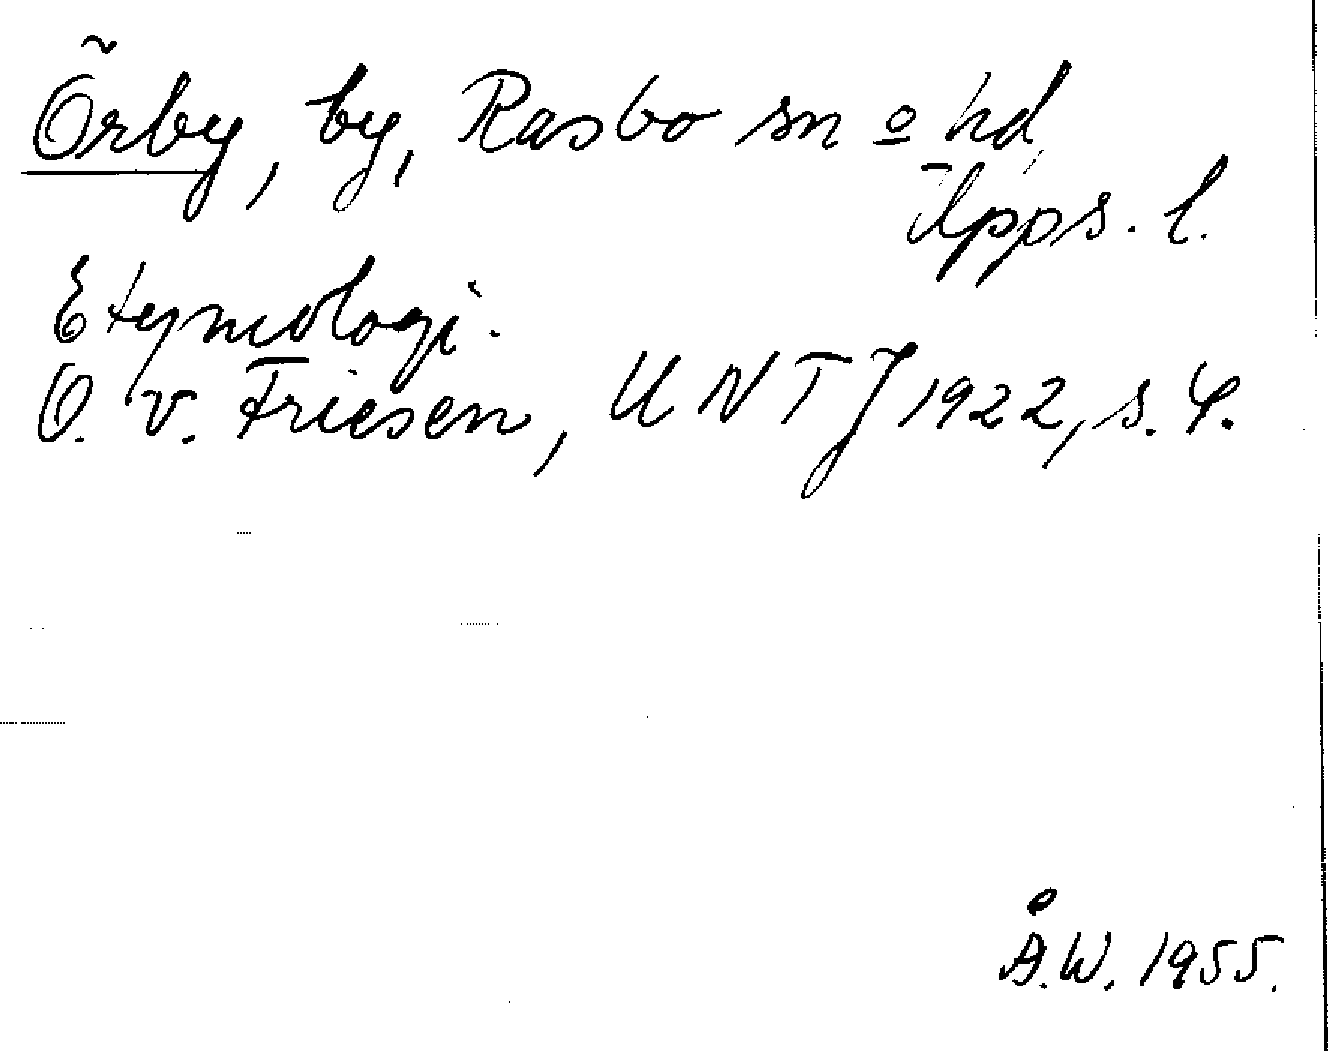 Örby, by, Rasbo sn o hd,
Upps. l.
Etymologi.
O. v. Friesen, UNTJ 1922, s. 4.
Å.W. 1955.